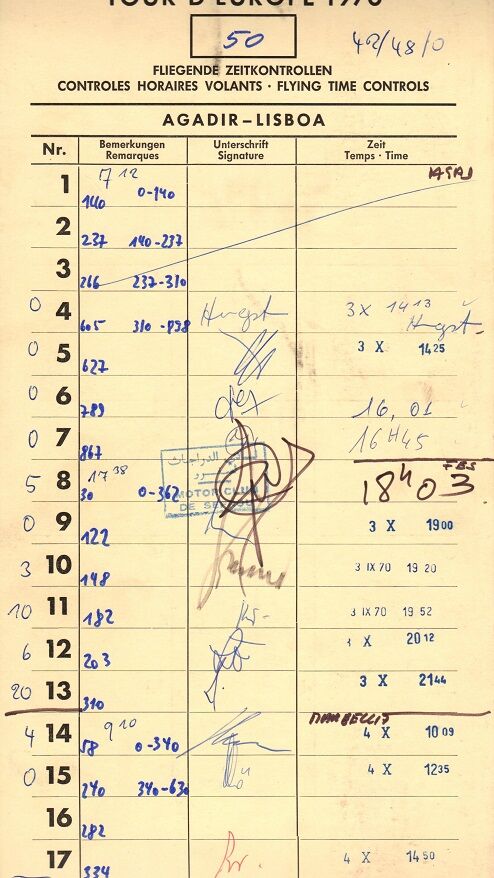 TOUR D'EUROPE 1970
50
42/48/0
FLIEGENDE ZEITKONTROLLEN
CONTROLES HORAIRES VOLANTS · FLYING TIME CONTROLS
AGADIR–LISBOA
Nr. Bemerkungen Remarques Unterschrift Signature Zeit Temps · Time
1 7 12 140 0-140
2 237 140-237
3 266 237-310
0 4 605 310-898 3 X 14 13
0 5 627 3 X 14 25
0 6 789 16, 01
0 7 867 16H45
5 8 17 38 30 0-362 MOTOR CLUB 18h03
0 9 122 3 X 19 00
3 10 148 3 IX 70 19 20
10 11 182 3 IX 70 19 52
6 12 203 X 20 12
20 13 310 3 X 21 44
4 14 9 10 58 0-340 4 X 10 09
0 15 240 340-630 4 X 12 35
16 282
17 334 4 X 14 50